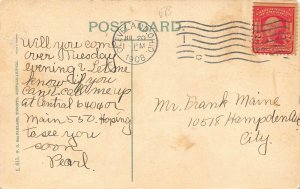 POST CARD.
CLEVELAND, OHIO
1908
Will you come
over Tuesday
evening? Let me
know if you
can't call me up
at Central 6400 or
Main 550. Hoping
to see you
soon
Pearl.
Mr. Frank Maine
10518 Hampden Av.
City.